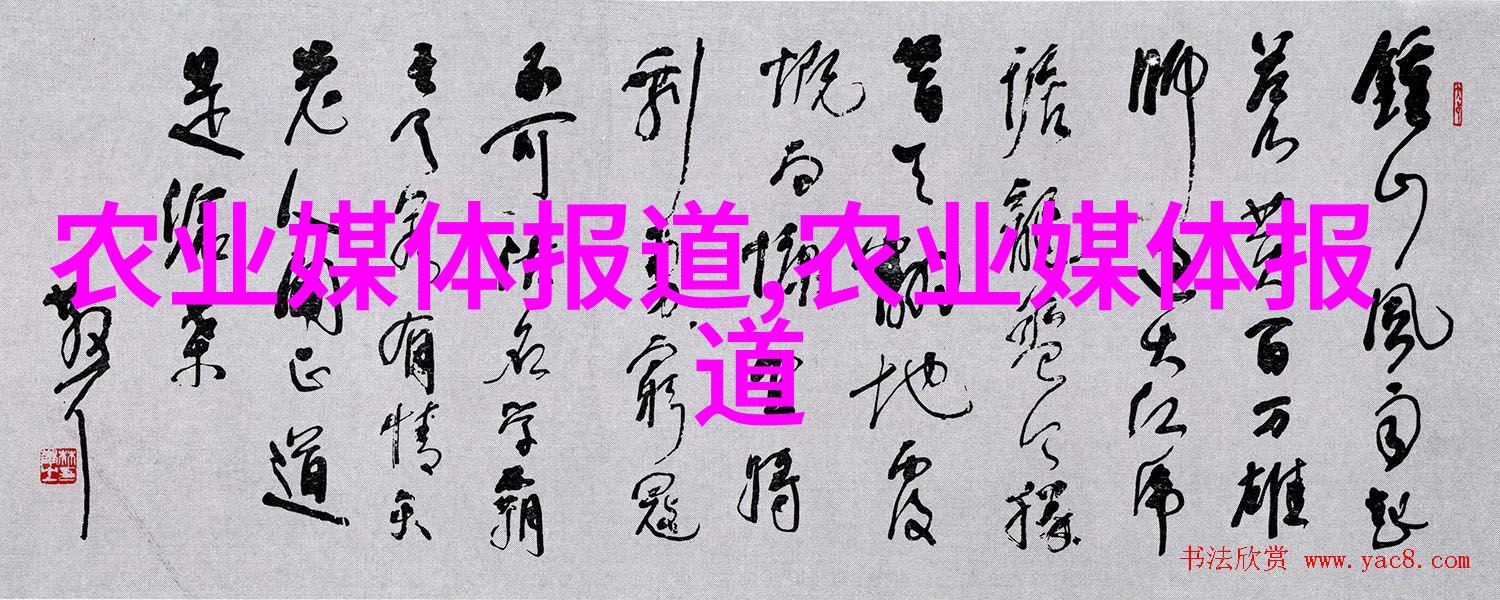 鍾山風雨起
蒼黄百万雄
師过大江虎
踞龍盤今勝
昔天翻地覆
慨而慷宜將
剩勇追窮寇
不可沽名学霸
王天若有情天亦
老人间正道
是滄桒
农业媒体报道,农业媒体报
道
书法欣赏 www.yac8.com